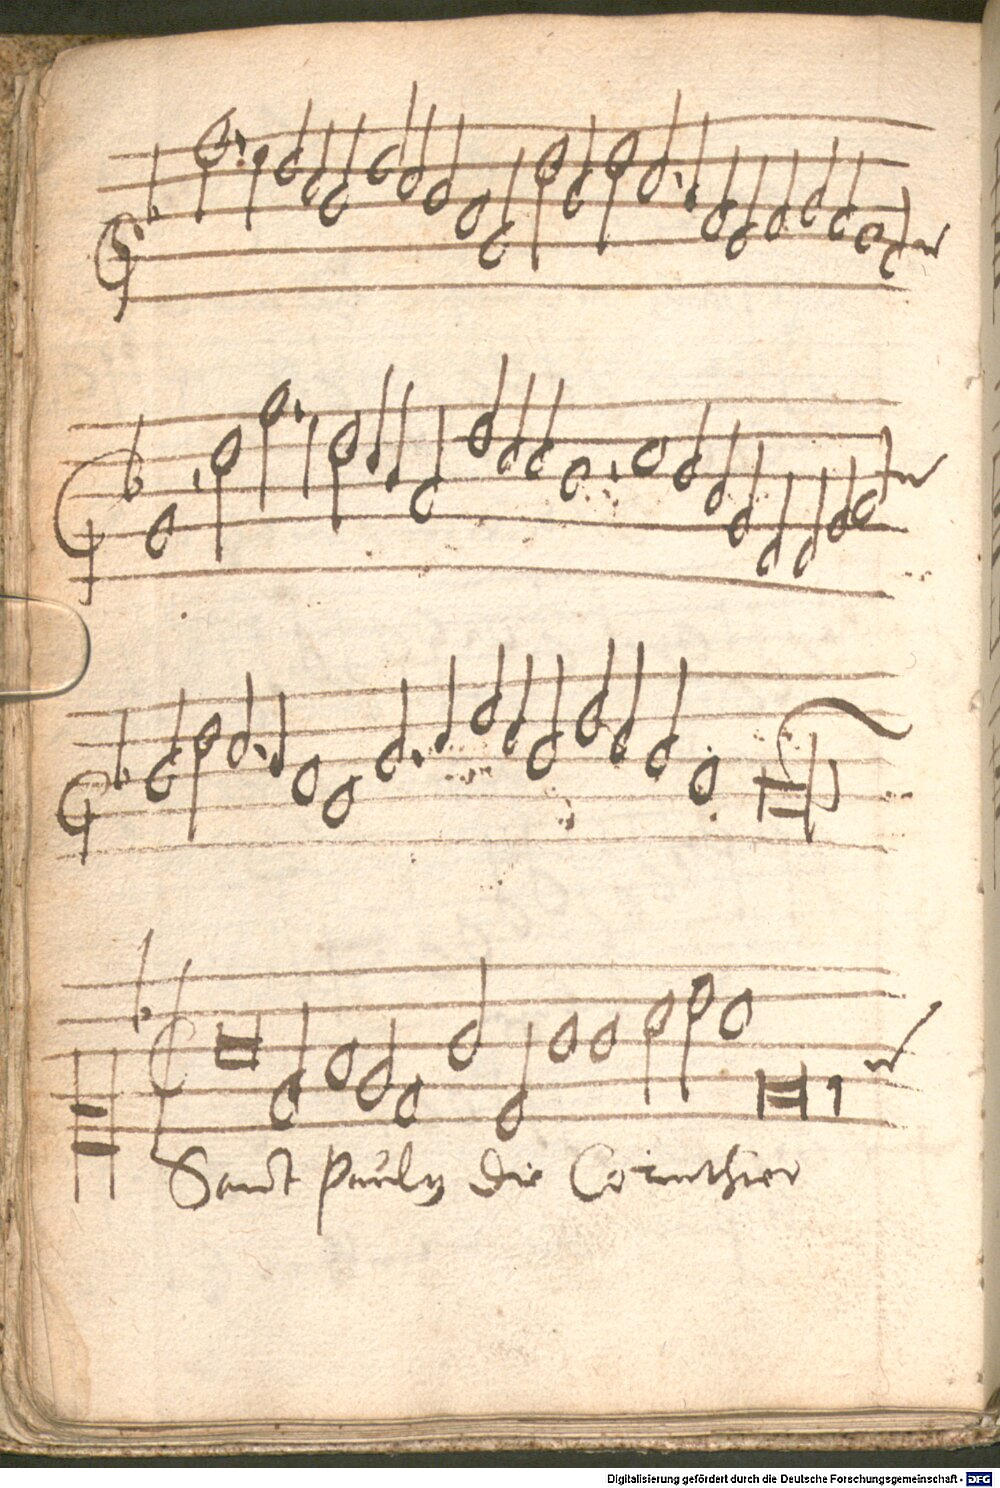 Sanct Paulus die Corinthier
Digitalisierung gefördert durch die Deutsche Forschungsgemeinschaft - DFG